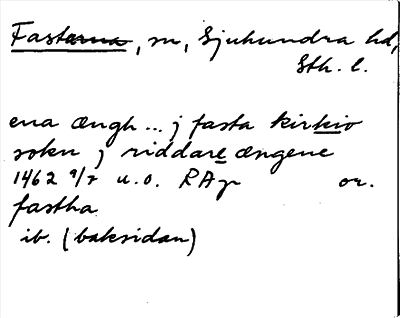 Fasterna, sn, Sjuhundra hd,
Sth. l.
ena ængh ... j fasta kirkio
sokn j riddare ængene
1462 9/2 u.o. RAp or.
fastha
ib. (baksidan)